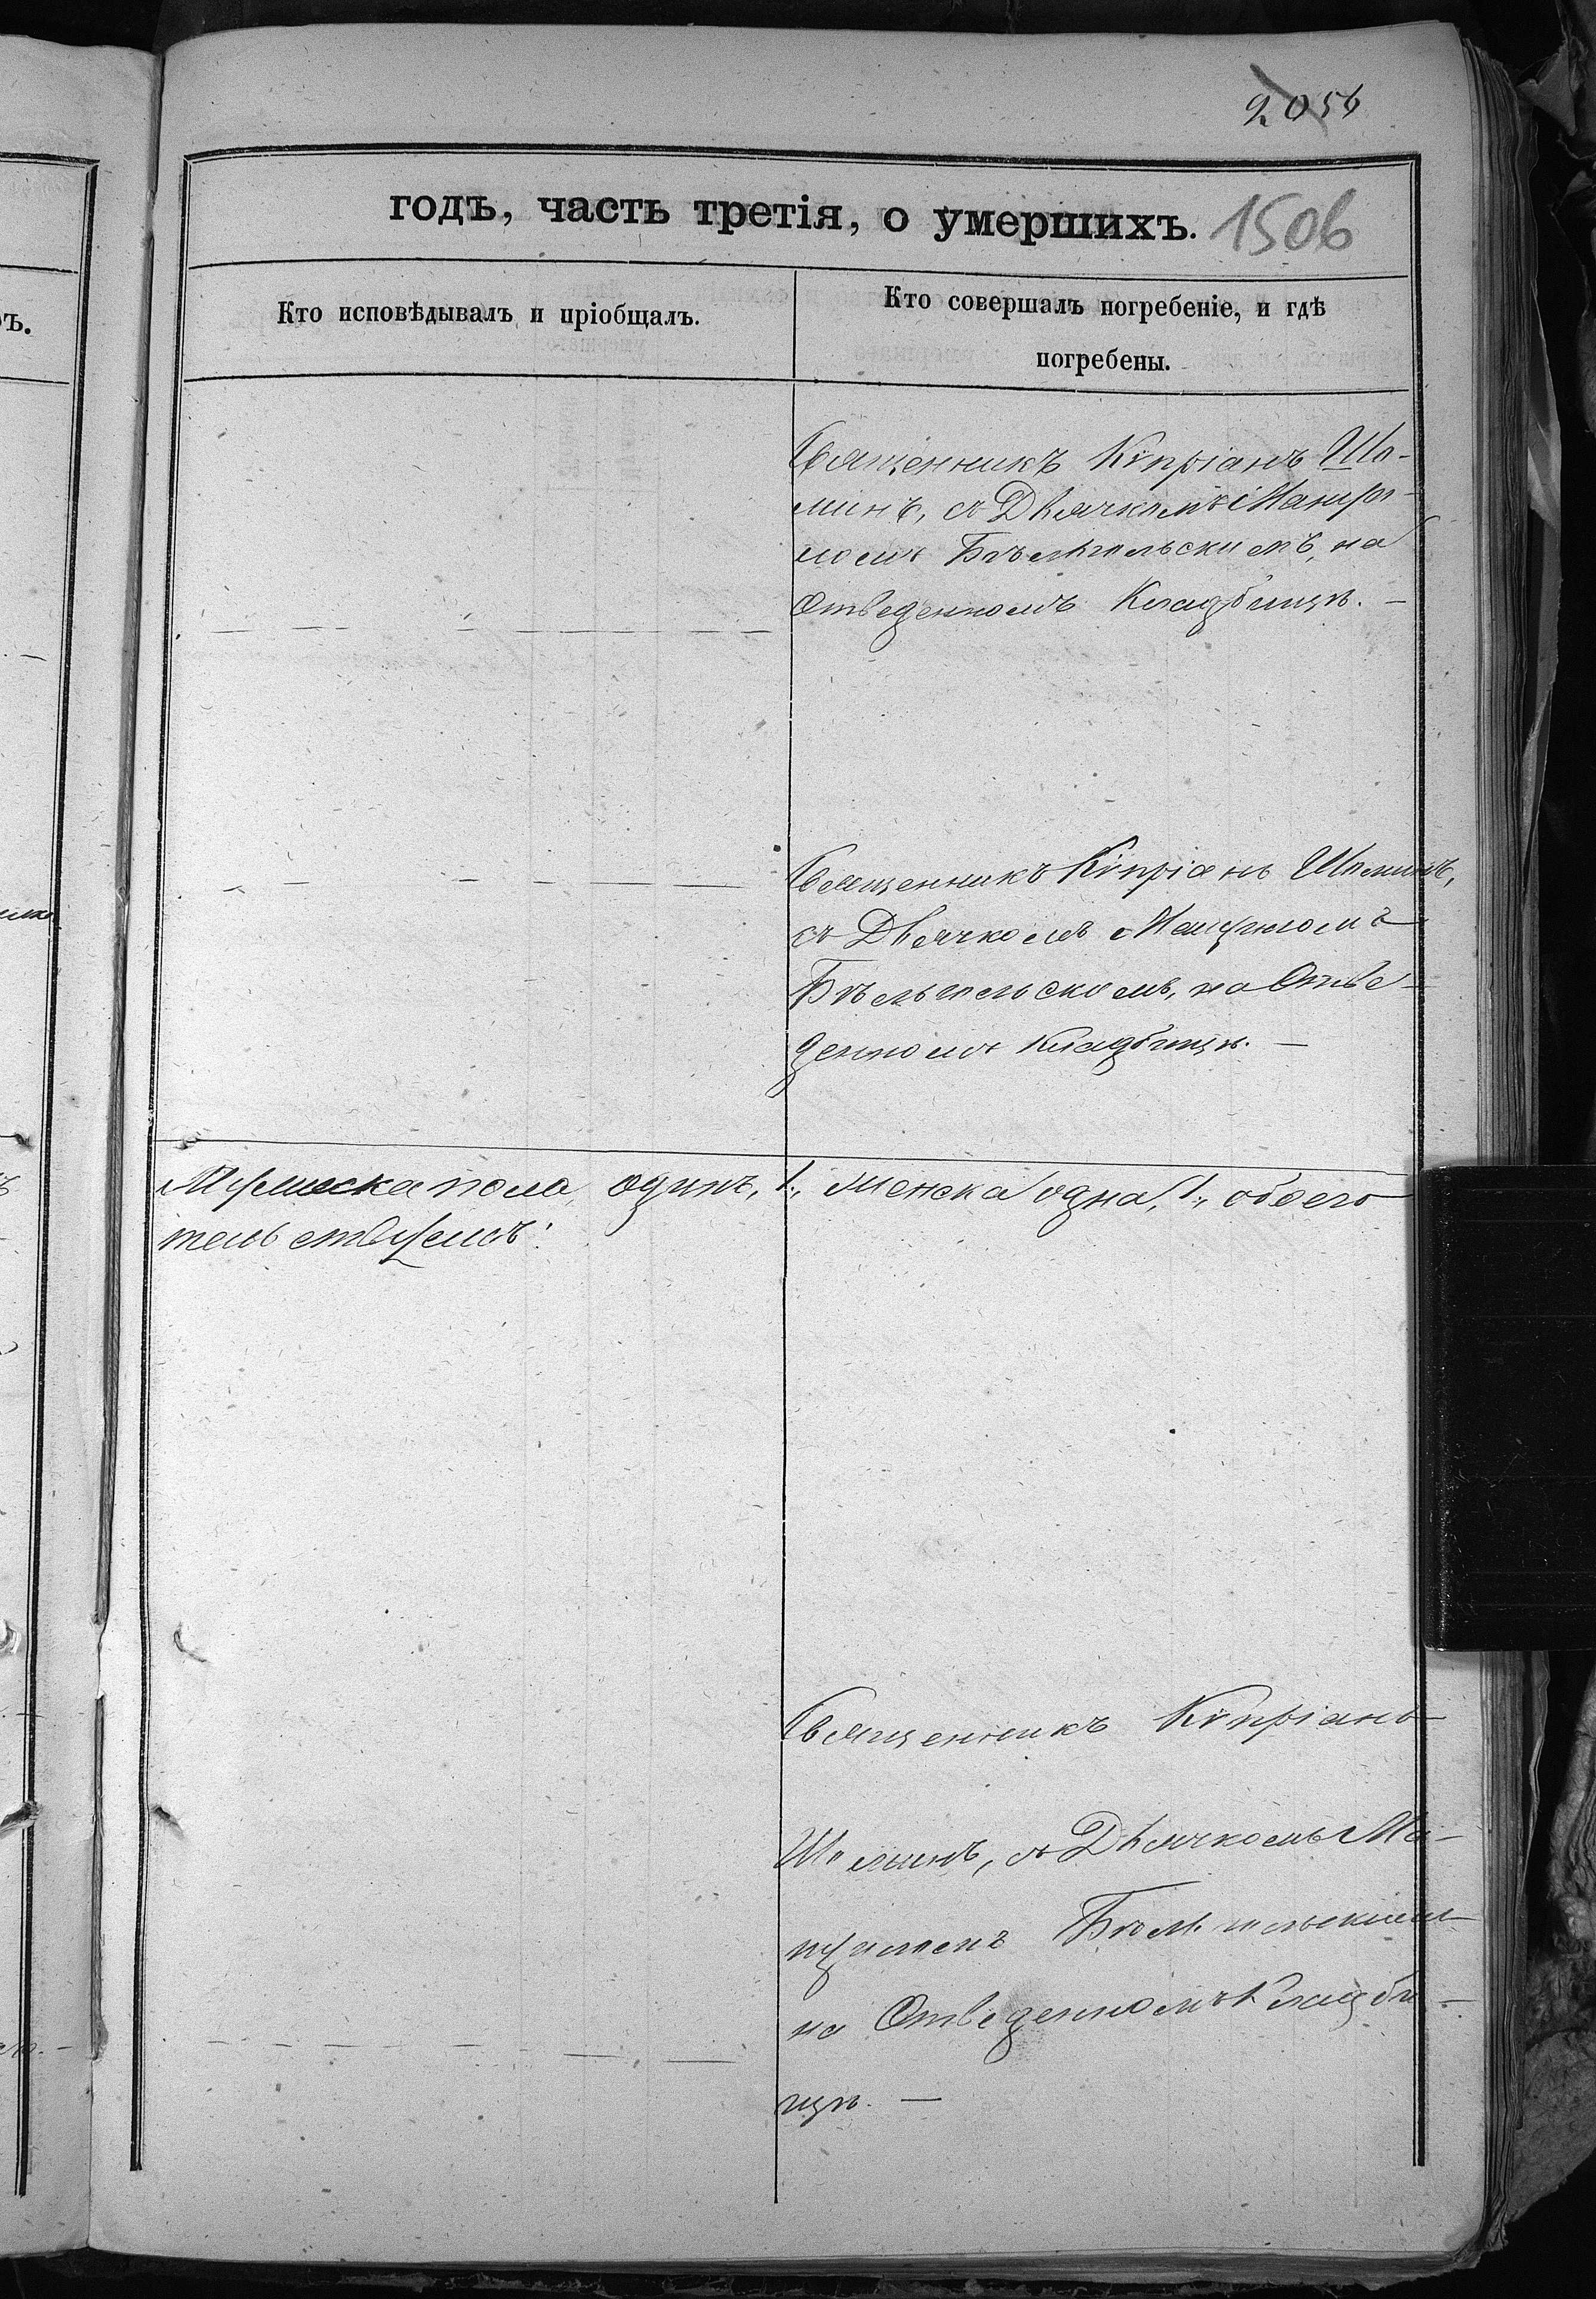 2056
годъ, часть третія, о умершихъ. 1506
Кто исповѣдывалъ и пріобщалъ.
Кто совершалъ погребеніе, и гдѣ
погребены.
Священникъ Кѵпріанъ Шо-
минъ, съ Дьячкомъ
на
Отведенномъ Кладбищѣ. —
Священникъ Кѵпріанъ Шоминъ,
съ Дьячкомъ
на Отве-
денномъ Кладбищѣ. —
Мужеска пола, одинъ, 1., Женска одна, 1., обоего
Священникъ Кѵпріанъ
Шоминъ, съ Дьячкомъ
на Отведенномъ Кладби-
щѣ. —